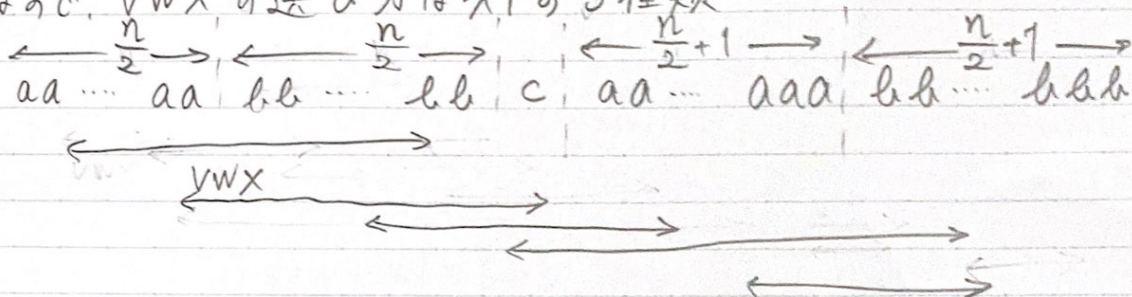 n/2 n/2 n/2+1 n/2+1
aa .... aa bb ..... bb c aa.... aaa bb.... bbb
vwx